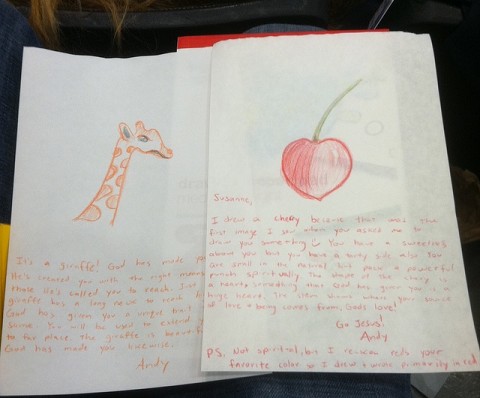 It's a giraffe! God has made you
He's created you with the right
those he's called you to reach. Just
giraffe has a long neck to reach
God has given you a unique
You will be used to extend
to far place. The giraffe is beautiful
God has made you likewise.
Andy
Susanne,
I drew a cherry because that was the
first image I saw when you asked me to
draw you something. You have a sweetness
about you but you have a side also. You
are small in the natural but pack a powerful
punch spiritually. The shape of the cherry is
a heart, something that God has given you a
huge heart. The stem shows where your source
of love & being comes from, God's love!
Go Jesus!
Andy
P.S. Not spiritual, but I reds your
favorite color so I drew & wrote primarily in red